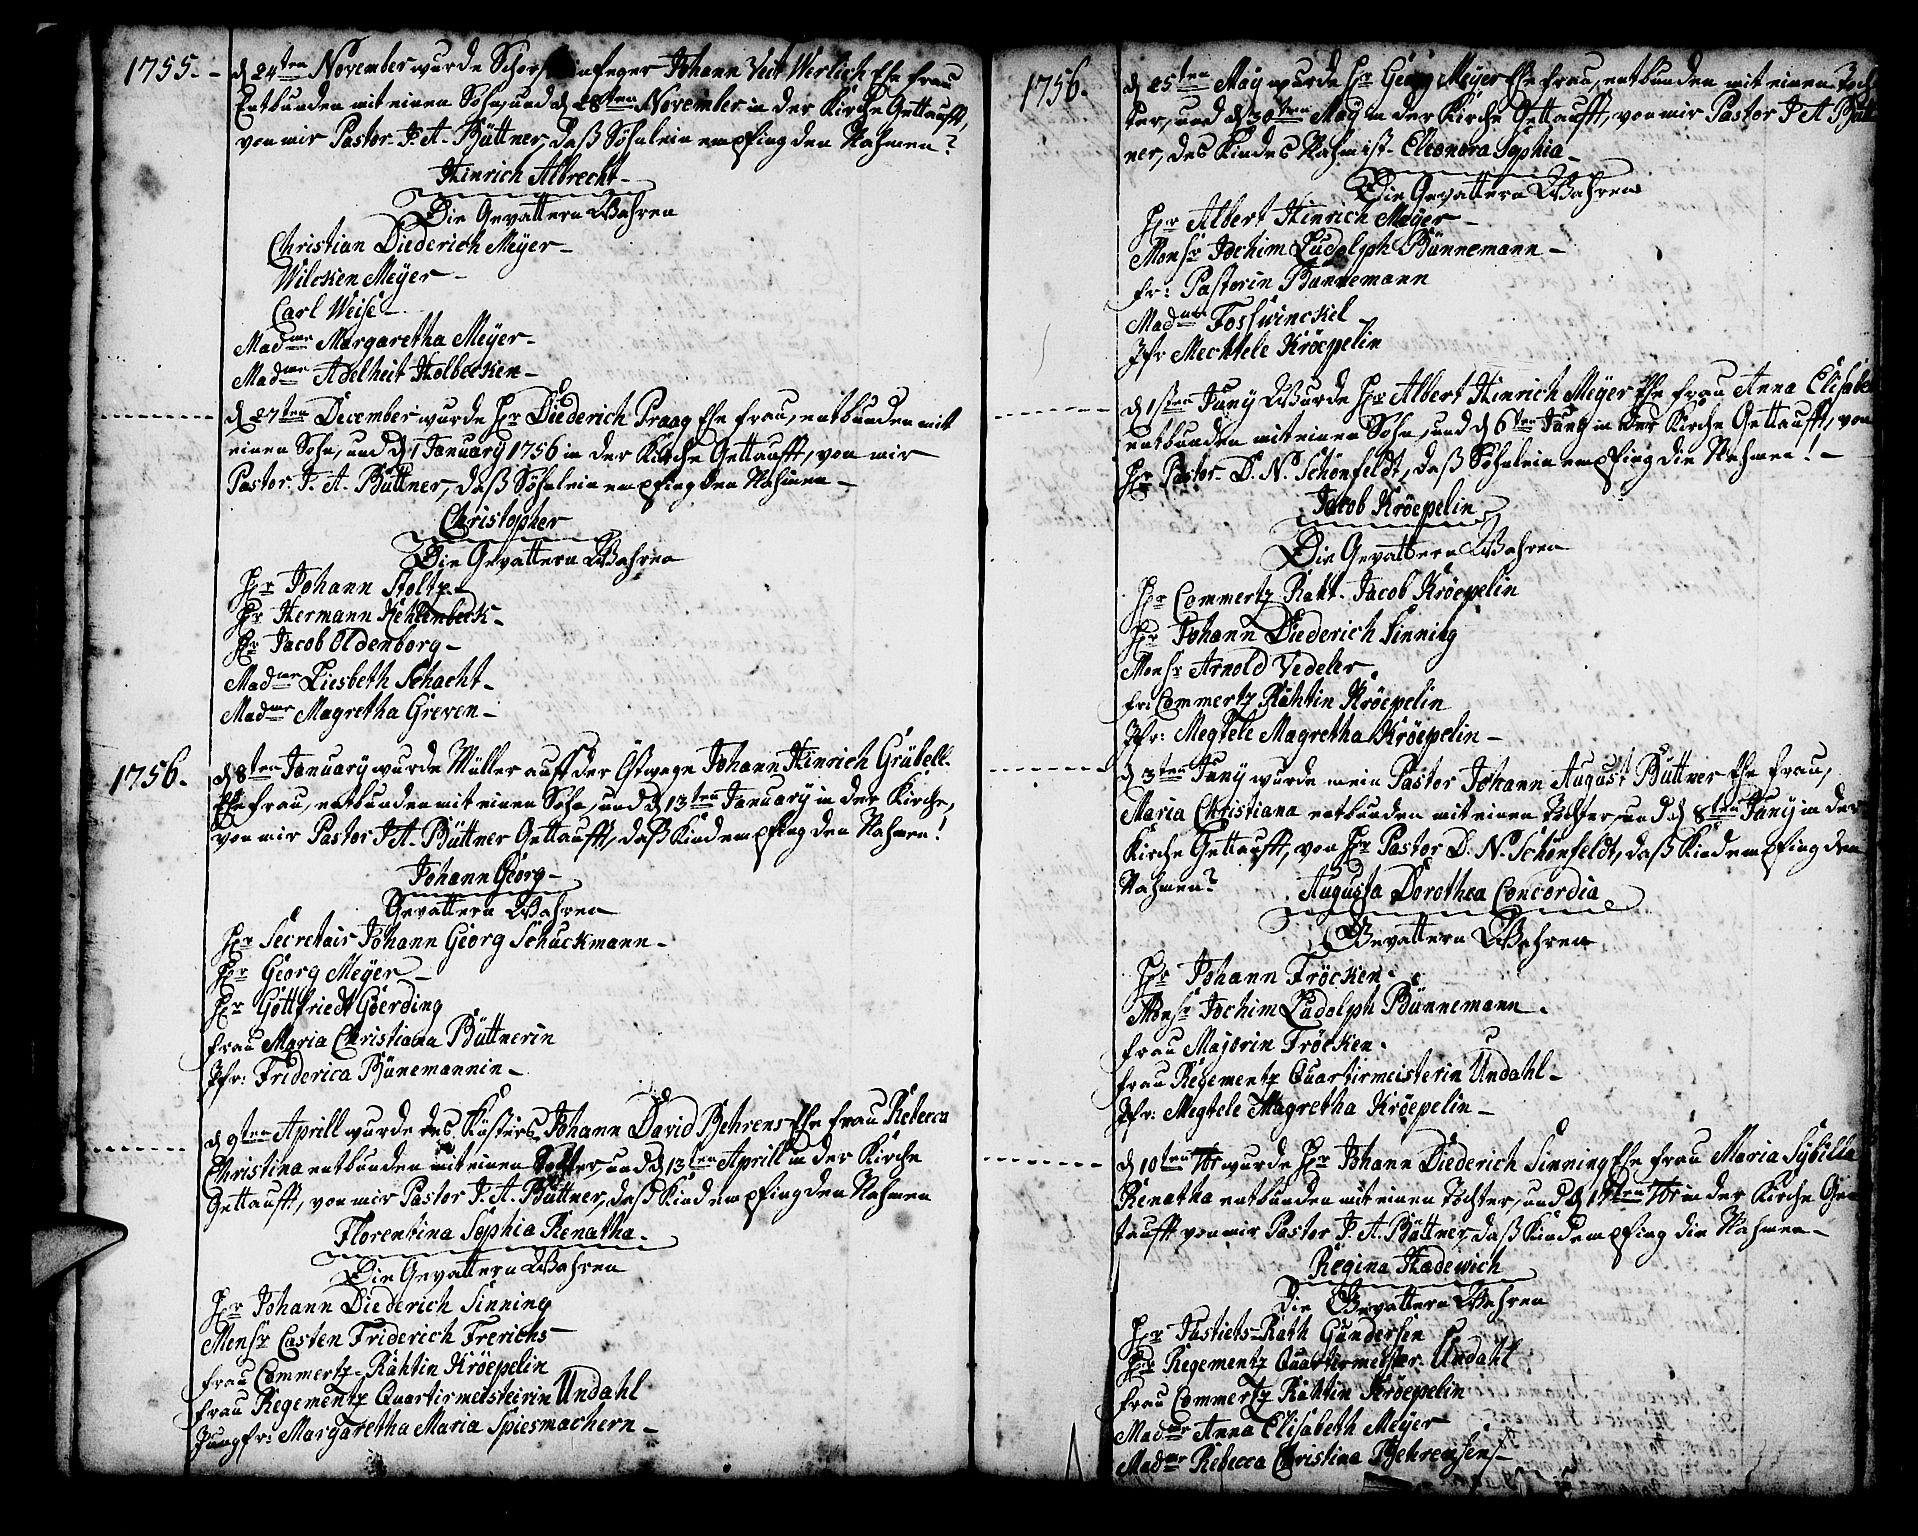 1755. - d 24ten November wurde Schorsteinfeger Johann Veit Werlich Ehe frau
Entbunden mit einen Sohn, und d 28ten November in der Kirche Gettaufft,
von mir Pastor J. A. Büttner, daß Söhnlein empfing den Nahmen?
Hinrich Albrecht
Die Gevattern Wahren
Christian Diederich Meÿer
Wilcken Meÿer
Carl Weise
Madme Margaretha Meÿer
Madme Adelheit Holbecken
d 27ten December wurde Hr Diederich Praag Ehe frau, entbunden mit
einen Sohn, und d 1 January 1756 in der Kirche Gettaufft, von mir
Pastor. J. A. Büttner, daß Söhnlein empfing den Nahmen
Christopher
Die Gevattern Wahren
Hr Johann Stoltz
Hr Hermann Kehlenbeck
Hr Jacob Oldenborg
Madme Liesbeth Schacht
Madme Magretha Greven
1756. d 8ten January wurde Müller auff der Ostwage Johann Hinrich Grübell
Ehe frau, entbunden mit einen Sohn, und d 13ten January in der Kirche,
von mir Pastor J A. Büttner Gettaufft, daß Kind empfing den Nahmen!
Johann Georg
Gevattern Wahren
Hr Secretair Johann Georg Schuckmann
Hr Georg Meÿer
Hr Gottfriedt Göerding
frau Maria Christiana Büttnerin
Jfr: Friderica Bünemannin
d 9ten Aprill wurde des Küsters Johann David Behrens Ehe frau Rebecca
Christina entbunden mit einen Tochter, und d 13ten Aprill in der Kirche
Gettaufft, von mir Pastor J. A. Büttner, daß Kind empfing den Nahmen
Florentina Sophia Renatha
Die Gevattern Wahren
Hr Johann Diederich Sinning
Monsr Casten Friderich Frerichs
frau Commertz-Rähtin Kröepelin
frau Regementz Quartirmeisterin Undahl
Jungfr: Margaretha Maria Spiesmachern
1756. d 25ten Maÿ wurde Hr Georg Meÿer Ehe frau, entbunden mit einen Toch
ter, und d 30ten Maÿ in der Kirche Gettaufft, von mir Pastor J A Bütt
ner, des Kindes Nahm ist. Eleonora Sophia
Die Gevattern Wahren
Hr Albert Hinrich Meÿer
Monsr Jochim Ludolph Bünnemann
fr: Pastorin Bünnemann
Madme Fosswinckel
Jfr Mechtele Kröepelin
d 1sten Junÿ Wurde Hr Albert Hinrich Meÿer Ehe frau Anna Elisabe
entbunden mit einen Sohn, und d 6ten Junÿ in der Kirche Gettaufft, von
Hr Pastor D. N. Schönfeldt, daß Söhnlein empfing die Nahmen!
Jacob Kröepelin
Die Gevattern Wahren
Hr Commertz Raht Jacob Kröepelin
Hr Johann Diederich Sinning
Monsr Arnold Vedeler.
fr: Commertz Rähtin Kröepelin
Jfr: Megtele Magretha Kröepelin
d 3ten Junÿ wurde mein Pastor Johann August Büttner Ehe frau,
Maria Christiana entbunden mit einen Tochter, und d 8ten Junÿ in der
Kirche Gettaufft, von Hr Pastor D. N. Schönfeldt, daß Kind empfing den
Nahmen? Augusta Dorothea Concordia
Gevattern Wahren
Hr Johann Fröcken
Monsr Jochim Ludolph Bünnemann.
frau Majorin Fröcken.
frau Regementz Quartirmeisterin Undahl
Jfr: Megtele Magretha Kröepelin
d 10ten wurde Hr Johann Diederich Sinning Ehe frau Maria Sÿbilla
Renatha entbunden mit einen Tochter, und in der Kirche Get
taufft von mir Pastor J. A. Büttner, daß Kind empfing die Nahmen
Regina Hadewich
Die Gevattern Wahren
Hr Justiets-Rath Gundersen
Hr Regementz Quartirmeister Undahl
frau Commertz Rähtin Kröepelin
Madme Anna Elisabeth Meÿer
Madme Rebecca Christina Behrensens